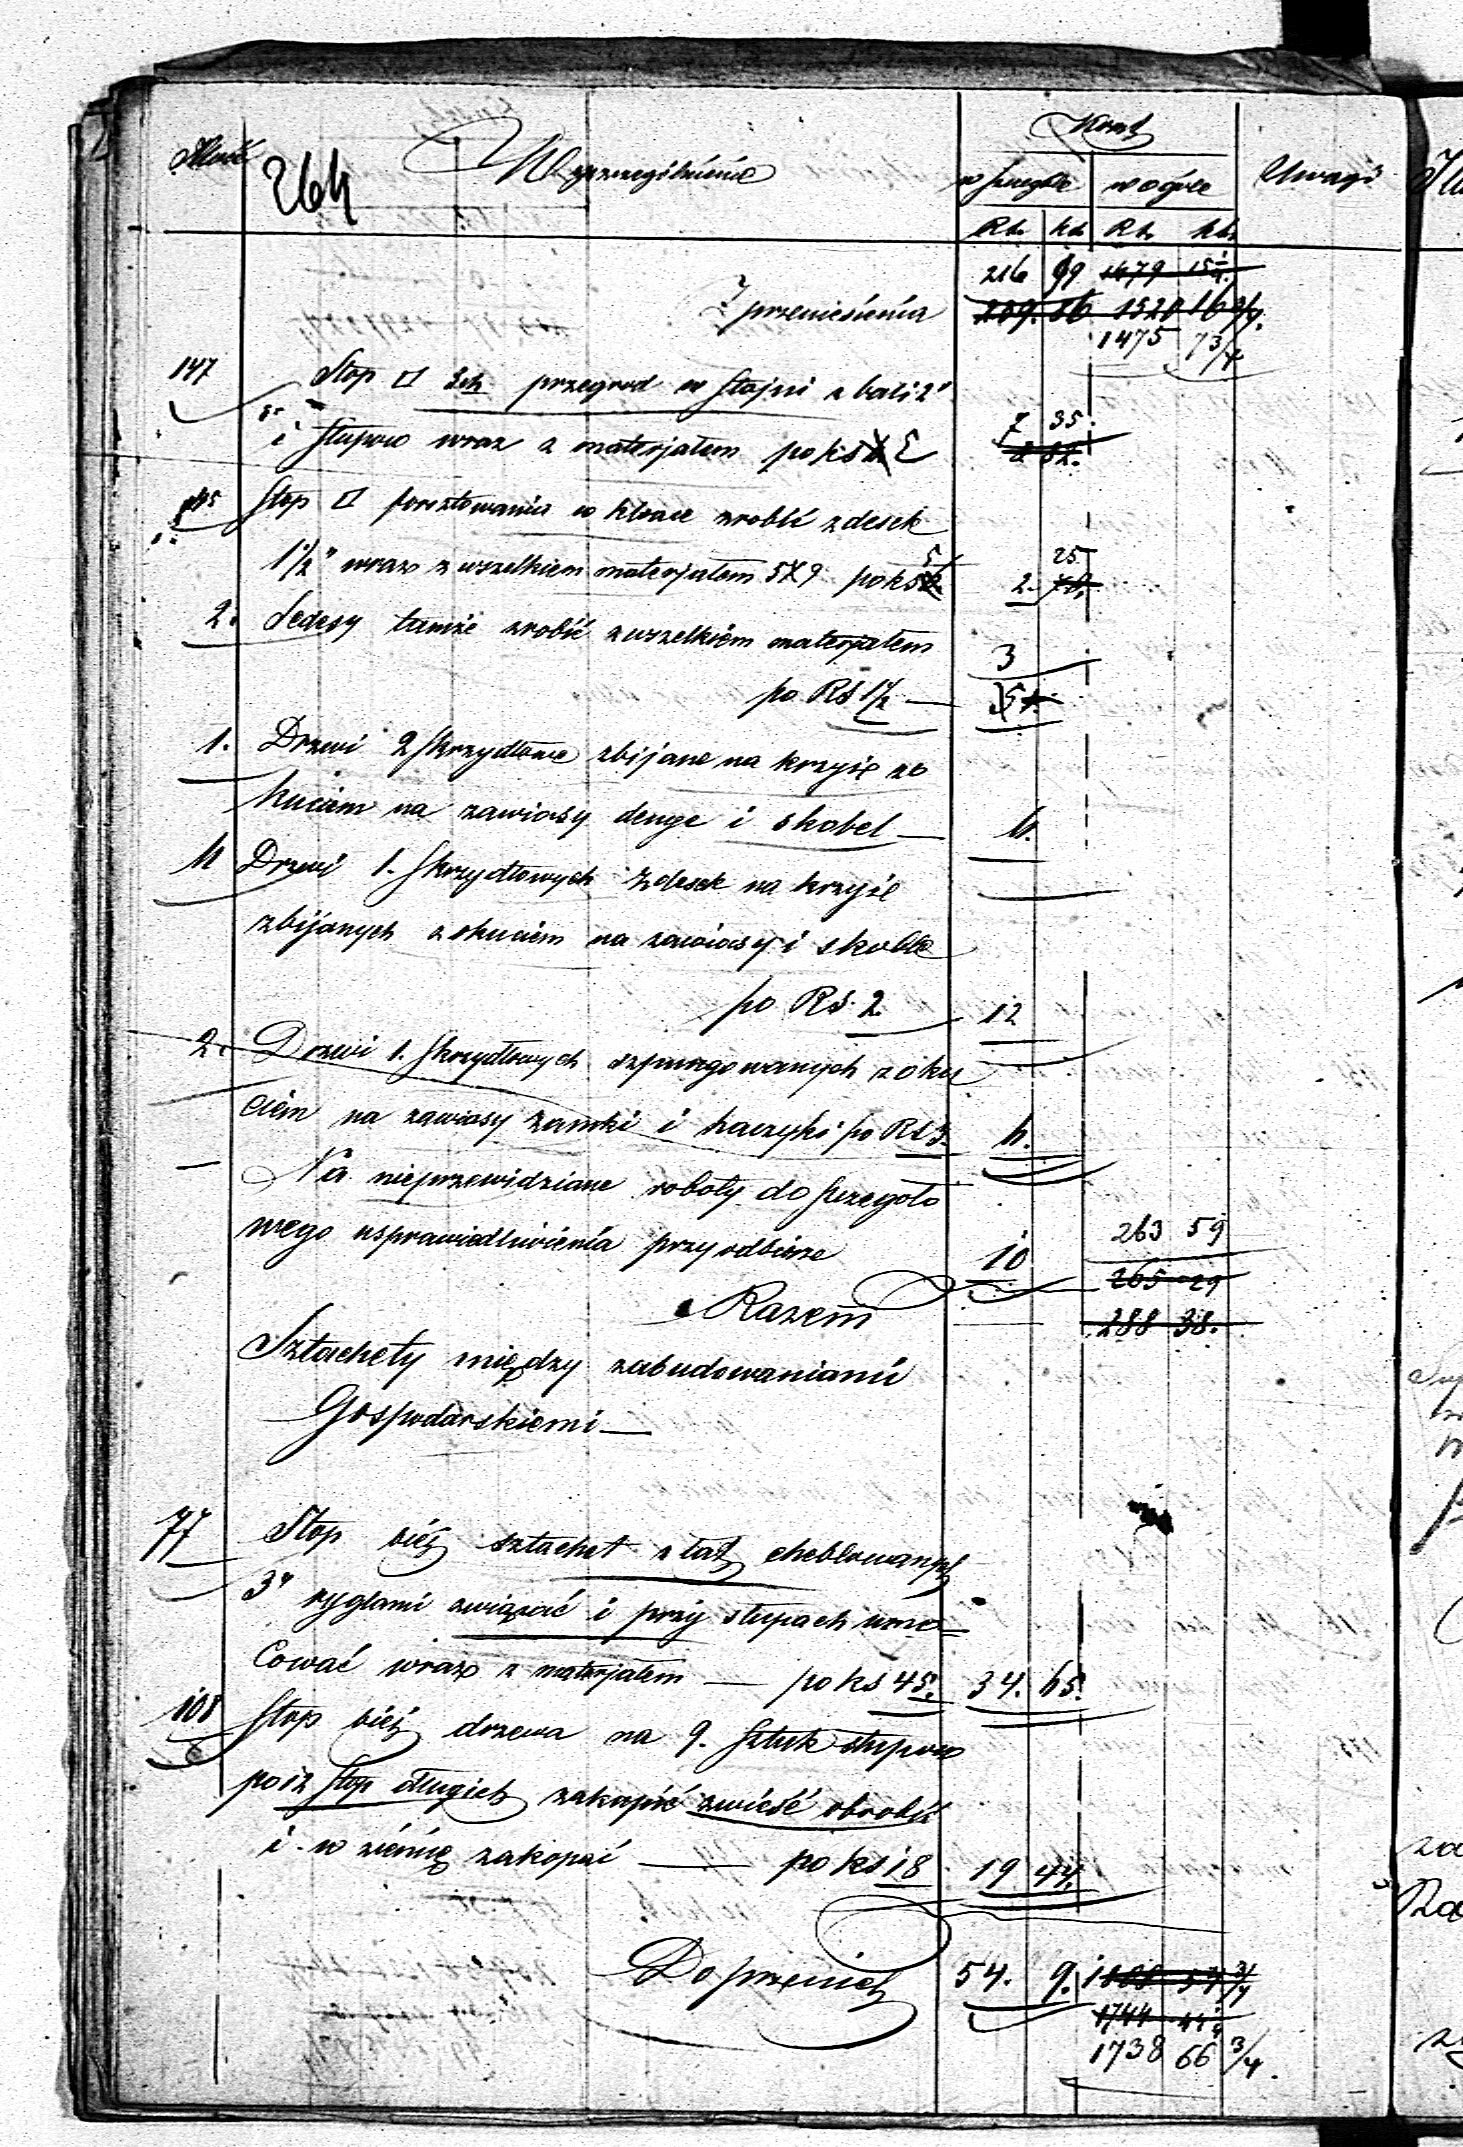 Ilość
264
Wyszczególnienie
Koszt
w szczególe w ogóle
Uwagi
Rb. kb. Rb. kb.
216 99 1479 15
Z przeniesienia 209. 86 1520 16 3/4.
1475 7 3/4
147 Stop □ przegrod w stajni z bali 2"
i słupow wraz z materjałem po ks 5
7 35.
45 Stop □ forsztowania w kloace zrobić z desek
1 1/2" wraz z wszelkiem materjałem 5X9 po ks 5
25
2.
2. Sedesy tamże zrobić z wszelkiem materjałem
3
po RS 1 1/2
1. Drzwi 2 skrzydłowe zbijane na krzyże z o
kuciem na zawiasy i skobel 6.
Drzwi 1. skrzydłowych z desek na krzyże
zbijanych z okuciem na zawiasy i skoble
po RS. 2 12
2. Drzwi 1. skrzydłowych szpungowanych z oku
ciem na zawiasy zamki i haczyki po RS 3.
Na nieprzewidziane roboty do szczegóło
wego usprawiedliwienia przy odbiorze 10
263 59
265 29
Razem 288 38.
Sztachety między zabudowaniami
Gospodarskiemi
77 Stop bież sztachet z łat heblowanych
3" ryglami związać i przy słupach umo-
cować wraz z materjałem po ks 45. 34. 65.
108 Stop bież drzewa na 9. sztuk słupow
po 12 stop długich zakupić zwieść obrobić
i w ziemię zakopać po ks 18 19 44.
Do przenies 54. 9. 1808 54 3/4
1744 44
1738 66 3/4.